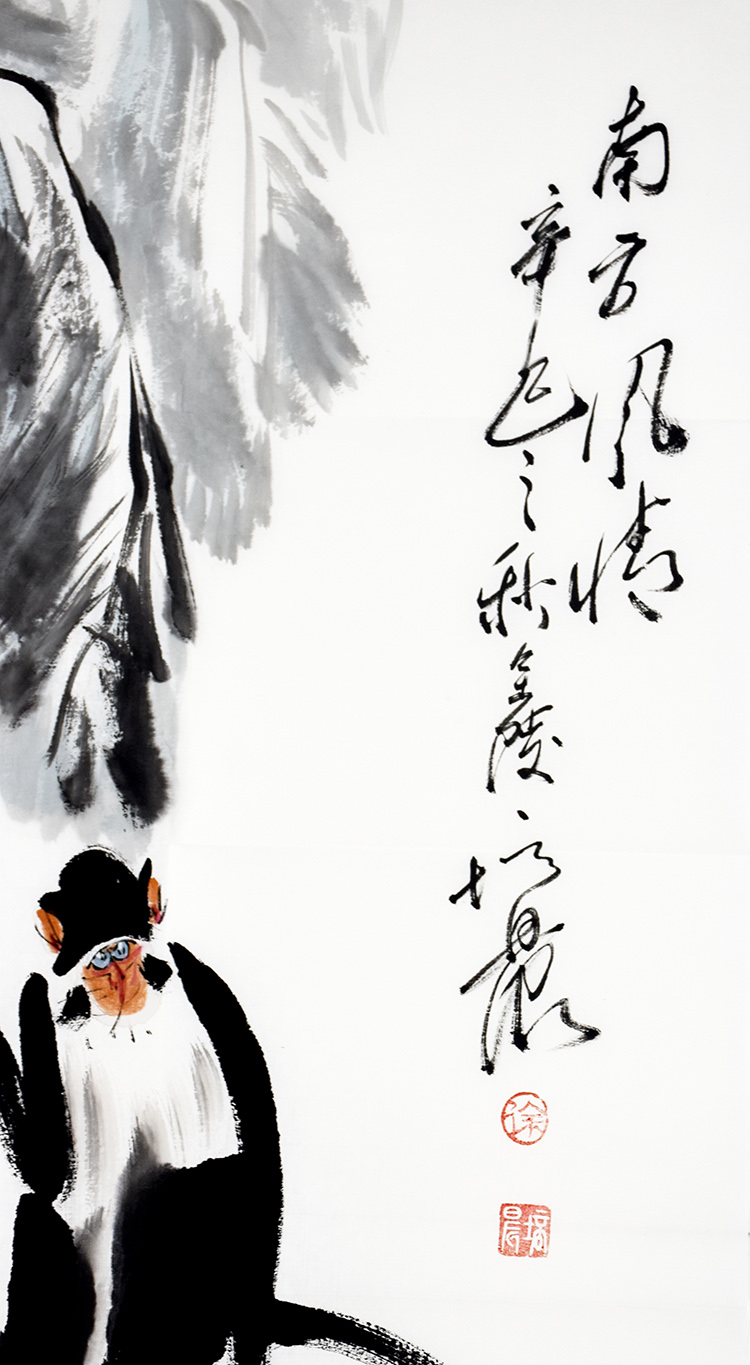 南方风情
辛巳之秋金陵培晨
徐
培晨